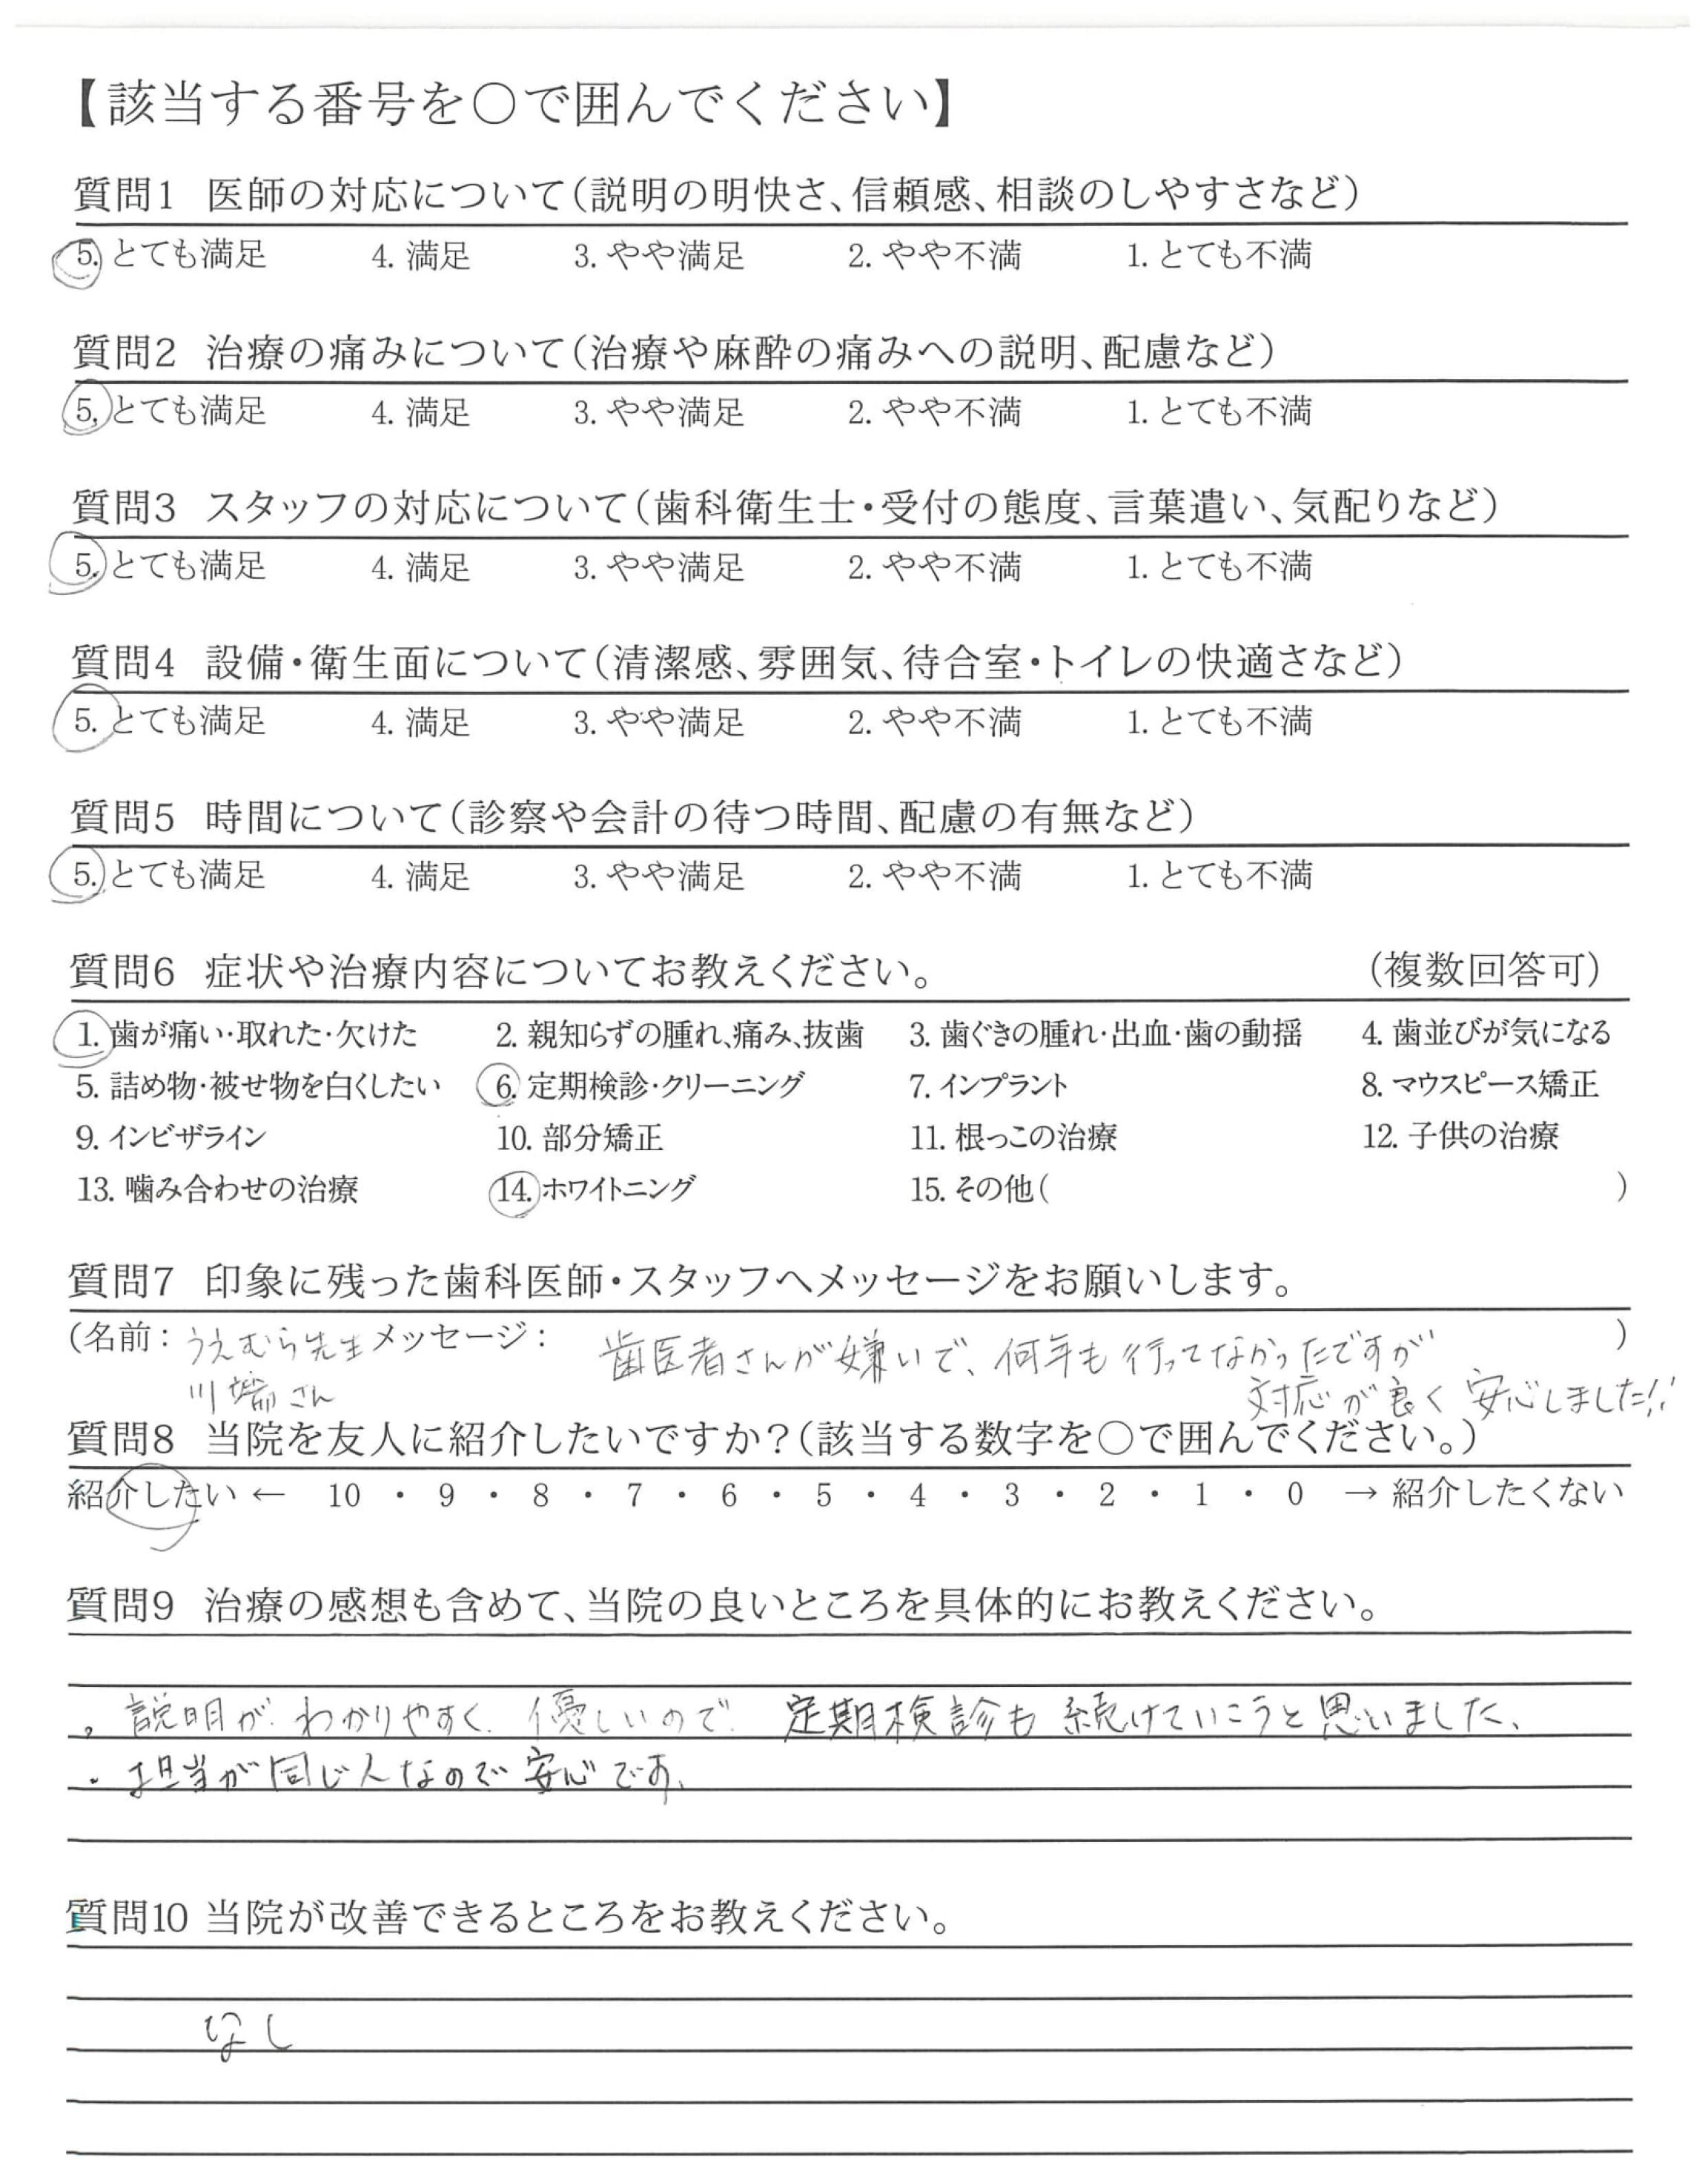 【該当する番号を○で囲んでください】
質問1 医師の対応について(説明の明快さ、信頼感、相談のしやすさなど)
5. とても満足 4. 満足 3. やや満足 2. やや不満 1. とても不満
質問2 治療の痛みについて(治療や麻酔の痛みへの説明、配慮など)
5. とても満足 4. 満足 3. やや満足 2. やや不満 1. とても不満
質問3 スタッフの対応について(歯科衛生士・受付の態度、言葉遣い、気配りなど)
5. とても満足 4. 満足 3. やや満足 2. やや不満 1. とても不満
質問4 設備・衛生面について(清潔感、雰囲気、待合室・トイレの快適さなど)
5. とても満足 4. 満足 3. やや満足 2. やや不満 1. とても不満
質問5 時間について(診察や会計の待つ時間、配慮の有無など)
5. とても満足 4. 満足 3. やや満足 2. やや不満 1. とても不満
質問6 症状や治療内容についてお教えください。 (複数回答可)
1. 歯が痛い・取れた・欠けた 2. 親知らずの腫れ、痛み、抜歯 3. 歯ぐきの腫れ・出血・歯の動揺 4. 歯並びが気になる
5. 詰め物・被せ物を白くしたい 6. 定期検診・クリーニング 7. インプラント 8. マウスピース矯正
9. インビザライン 10. 部分矯正 11. 根っこの治療 12. 子供の治療
13. 噛み合わせの治療 14. ホワイトニング 15. その他( )
質問7 印象に残った歯科医師・スタッフへメッセージをお願いします。
(名前: うえむら先生 メッセージ: 歯医者さんが嫌いで、何年も行ってなかったですが )
川端さん 対応が良く安心しました!!
質問8 当院を友人に紹介したいですか?(該当する数字を○で囲んでください。)
紹介したい ← 10 ・ 9 ・ 8 ・ 7 ・ 6 ・ 5 ・ 4 ・ 3 ・ 2 ・ 1 ・ 0 → 紹介したくない
質問9 治療の感想も含めて、当院の良いところを具体的にお教えください。
・説明が わかりやすく 優しいので 定期検診も続けていこうと思いました、
・担当が同じ人なので安心です。
質問10 当院が改善できるところをお教えください。
なし